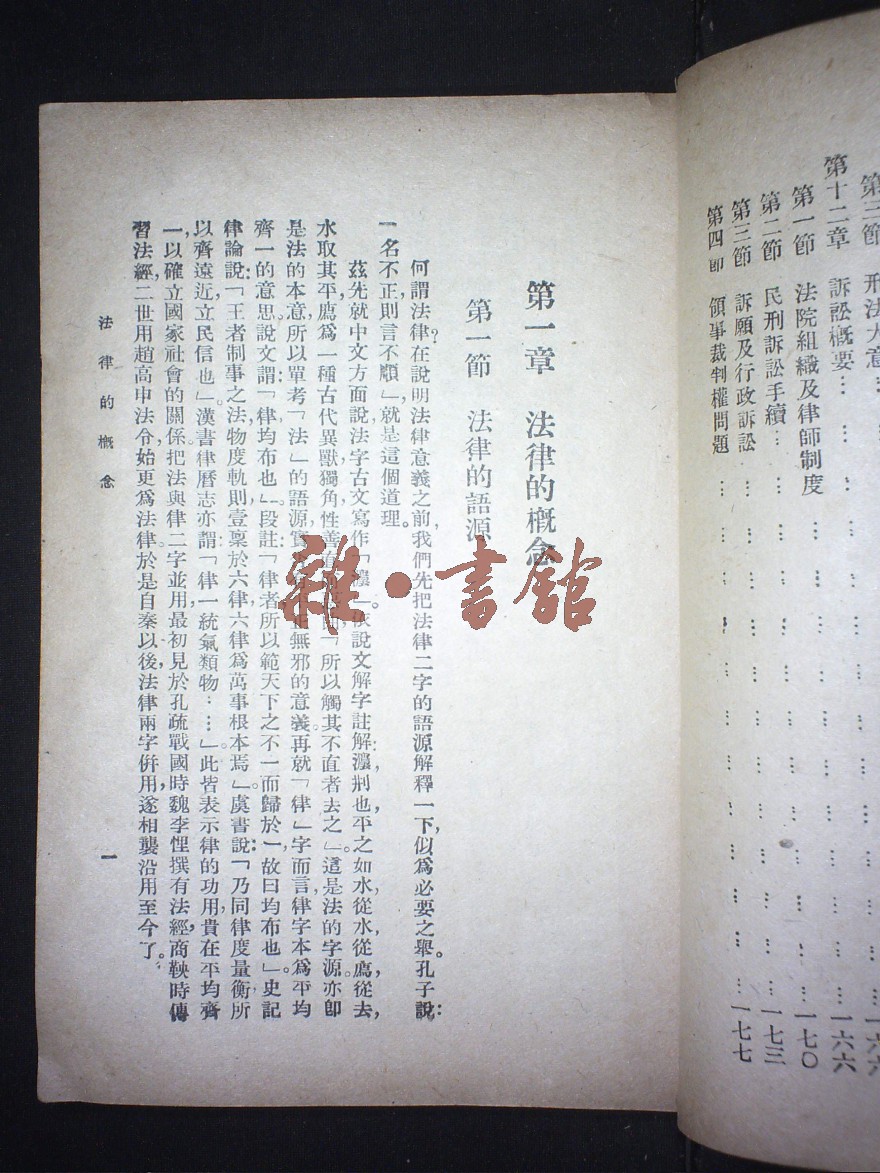 第三節 刑法大意… … … … … … … …一六六
第十二章 訴訟概要… … … … … … … …一六六
第一節 法院組織及律師制度 … … … … … … …一七〇
第二節 民刑訴訟手續… … … … … … … …一七三
第三節 訴願及行政訴訟 … … … … … … …
第四節 領事裁判權問題 … … … … … … … …一七七
第一章 法律的概念
第一節 法律的語源
何謂法律?在說明法律意義之前,我們先把法律二字的語源解釋一下,似爲必要之舉。孔子說:
「名不正,則言不順,」就是這個道理。
茲先就中文方面說,法字古文寫作「灋」。依說文解字註解:灋,刑也。平之如水,從水,從廌,從去,
水取其平,廌爲一種古代異獸,獨角性善 「所以觸其不直者去之。」這是法的字源,亦卽
是法的本意,所以單考「法」的語源,實 正無邪的意義。再就「律」字而言,律字本爲平均
齊一的意思,說文謂:「律均布也」。段註:「律者所以範天下之不一而歸於一,故曰均布也」。史記
律論說:「王者制事之法,物度軌則,壹稟於六律,六律爲萬事根本焉。」虞書說:「乃同律度量衡,所
以齊遠近立民信也。」漢書律曆志亦謂:「律一統氣類物……」此皆表示律的功用,貴在平均齊
一,以確立國家社會的關係。把法與律二字並用,最初見於孔疏,戰國時魏李悝撰有法經,商鞅時傳
習法經,二世用趙高申法令,始更爲法律,於是自秦以後,法律兩字併用,遂相襲沿用至今了。
法律的概念
一
雜·書館